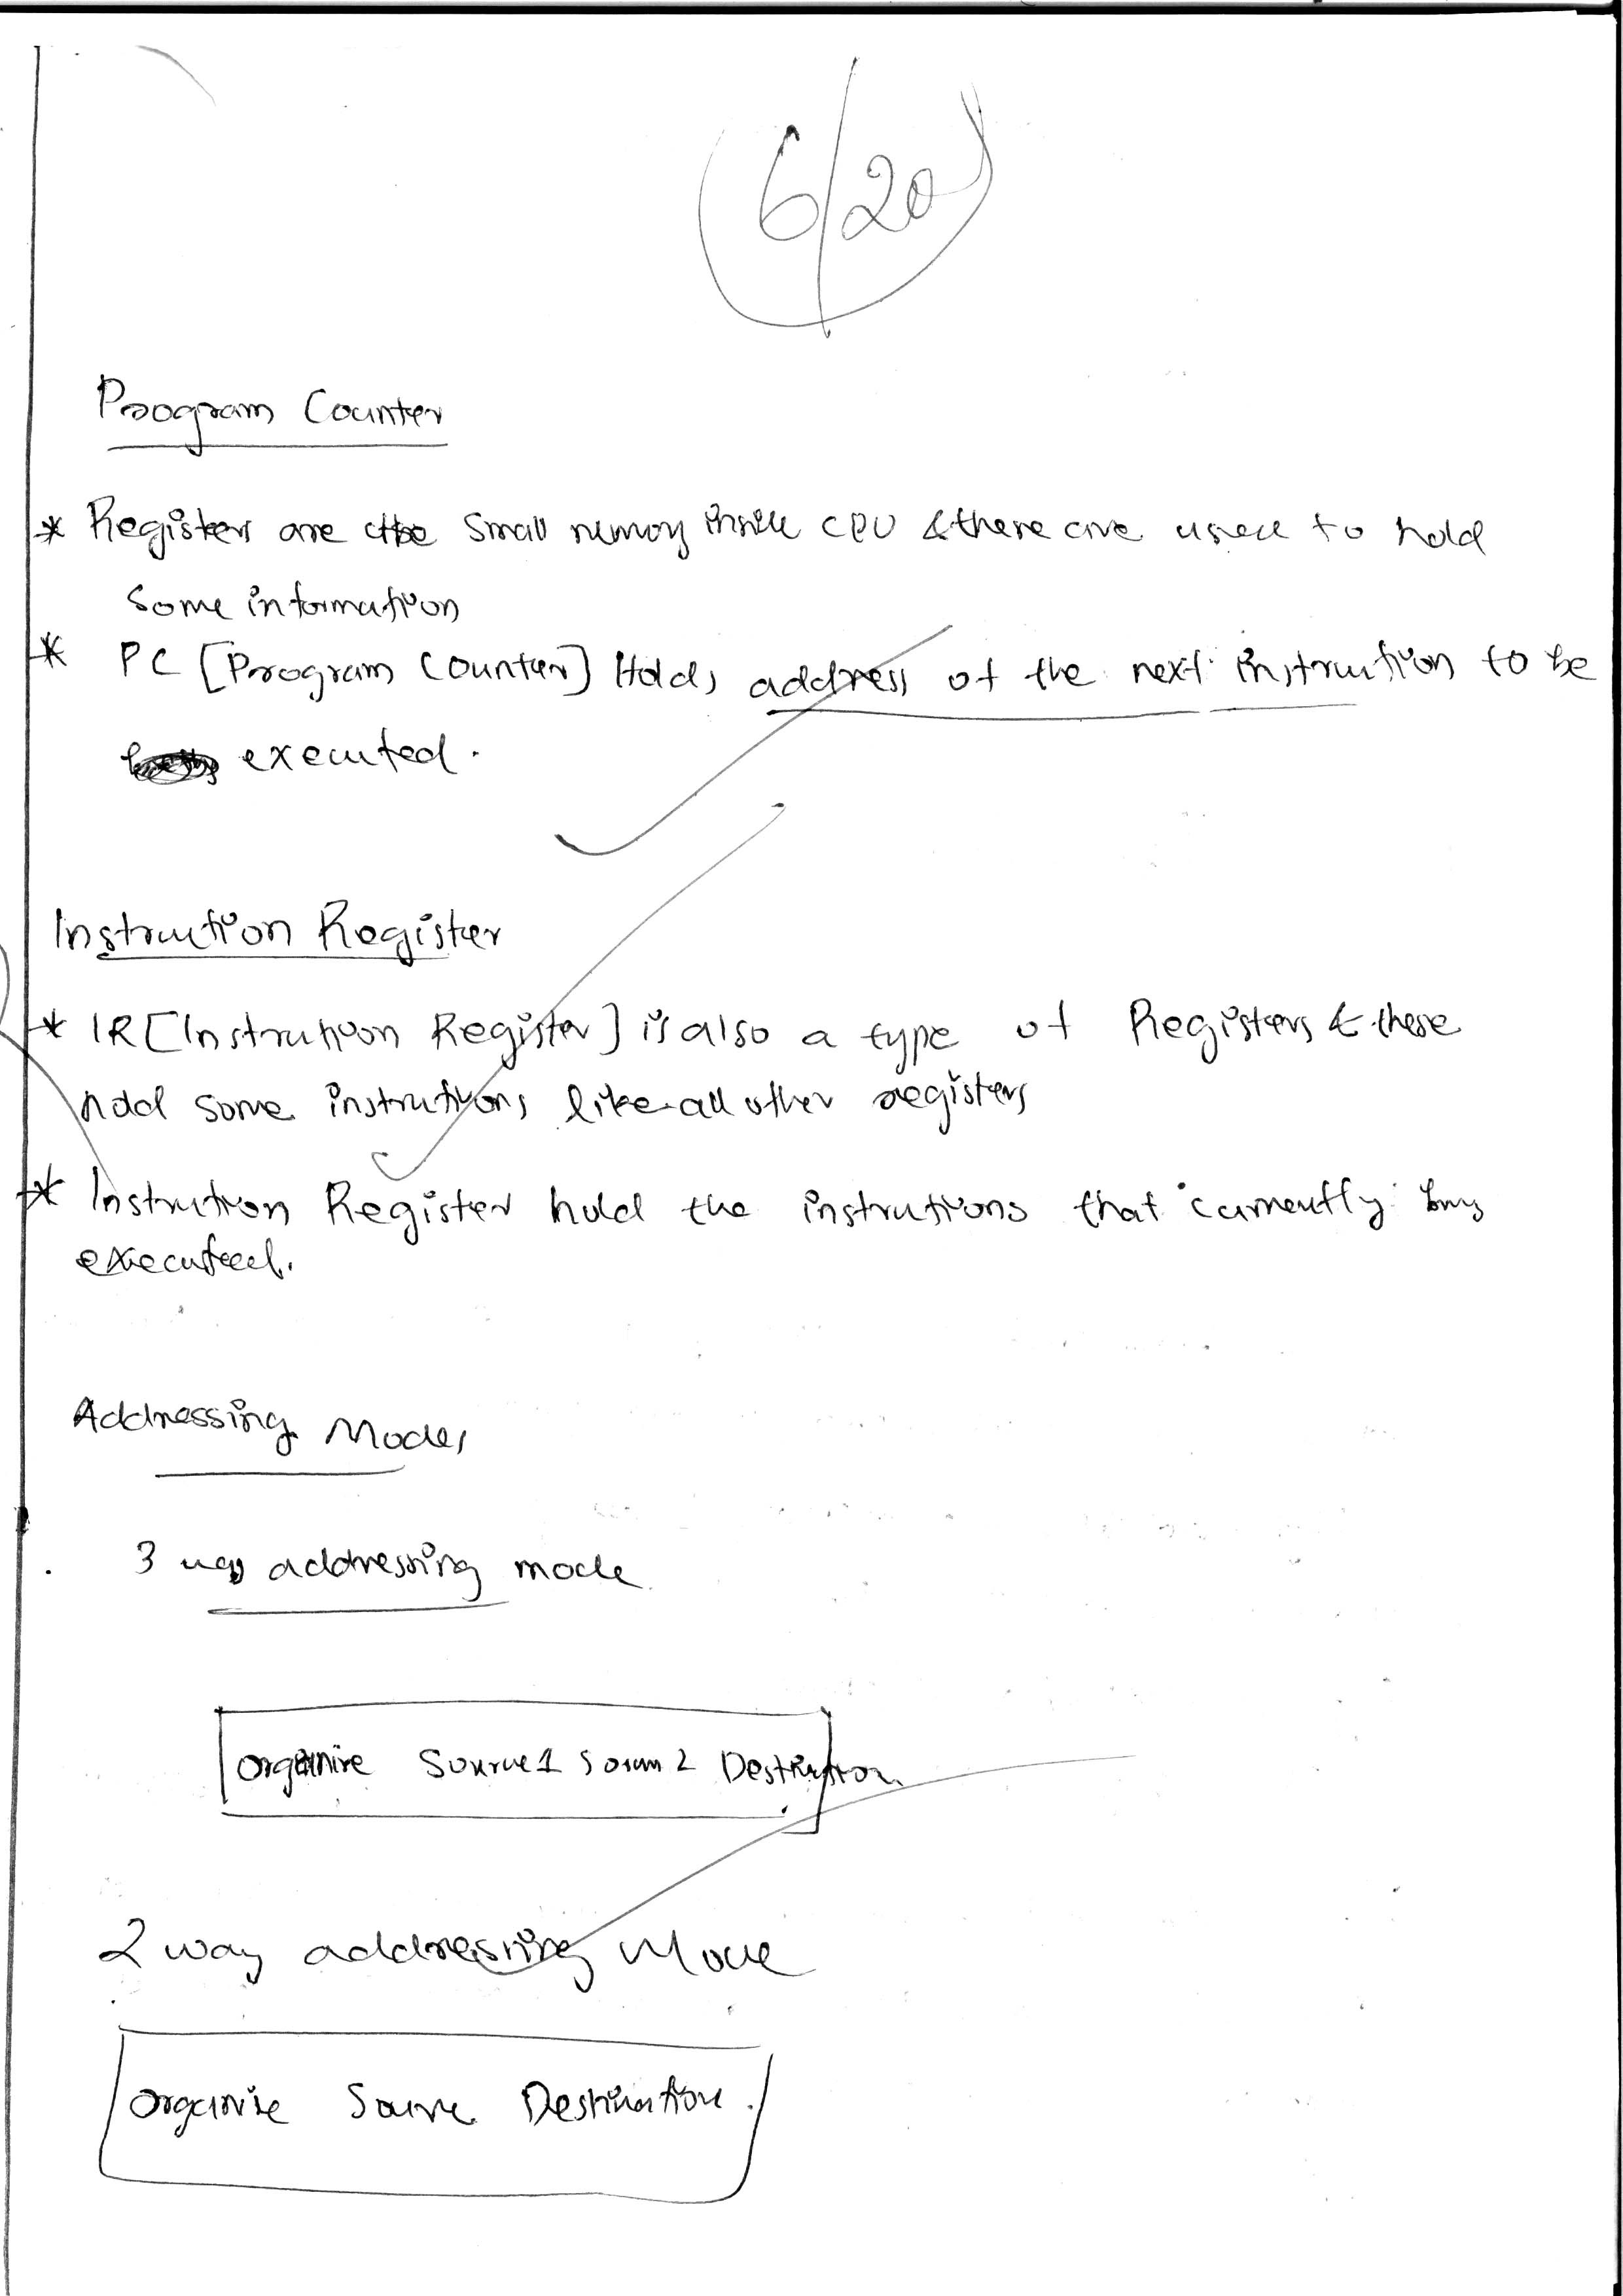 6/20
Program Counter
* Registers are the small memory inside CPU & these are used to hold
some information
* PC [Program Counter] Holds address of the next instruction to be
executed.
Instruction Register
* IR [Instruction Register] is also a type of Registers & these
hold some instructions like all other registers
* Instruction Register hold the instructions that currently
executed.
Addressing Modes
3 way addressing mode
Organise Source1 Source 2 Destination
2 way addressing Mode
Organise Source Destination.